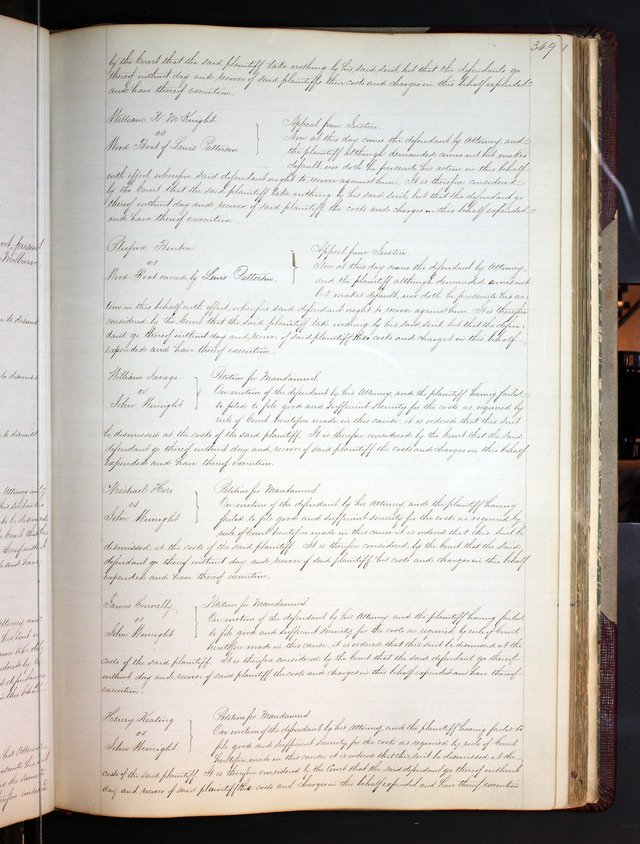 349
by the Court that the said plaintiff take nothing by his said suit but that the defendants go
thereof without day and recover of said plaintiff their costs and charges in this behalf expended
and have thereof execution.
William R McKnight
vs
Wood Boat of Lewis Patterson
Appeal from Justice.
Now at this day comes the defendant by Attorney and
the plaintiff although demanded comes not but makes
default nor doth he prosecute his action in this behalf
with effect wherefore said defendant ought to recover against him. It is therefore considered
by the Court that the said plaintiff take nothing by his said suit but that the defendant go
thereof without day and recover of said plaintiff the costs and charges in this behalf expended
and have thereof execution.
Benton
vs
Wood Boat owned by Lewis Patterson.
Appeal from Justice.
Now at this day comes the defendant by Attorney,
and the plaintiff although demanded comes not
but makes default, nor doth he prosecute his ac-
tion in this behalf with effect wherefore said defendant ought to recover against him. It is therefore
considered by the Court that the said plaintiff take nothing by his said suit but that the defen-
dant go thereof without day and recover of said plaintiff the costs and charges in this behalf
expended and have thereof execution.
William Savage
vs
John Enright
Petition for Mandamus.
On motion of the defendant by his Attorney, and the plaintiff having failed
to file good and sufficient security for the costs as required by
rule of Court heretofore made in this cause, it is ordered that this suit
be dismissed at the costs of the said plaintiff. It is therefore considered by the Court that the said
defendant go thereof without day and recover of said plaintiff the costs and charges in this behalf
expended and have thereof execution.
Michael
vs
John Enright
Petition for Mandamus
On motion of the defendant by his Attorney and the plaintiff having
failed to file good and sufficient security for the costs as required by
rule of Court heretofore made in this cause it is ordered that this suit be
dismissed at the costs of the said plaintiff. It is therefore considered by the Court that the said
defendant go thereof without day and recover of said plaintiff his costs and charges in this behalf
expended and have thereof execution.
James Connelly
vs
John Enright
Petition for Mandamus.
On motion of the defendant by his Attorney, and the plaintiff having failed
to file good and sufficient security for the costs as required by rule of Court
heretofore made in this cause, it is ordered that this suit be dismissed at the
costs of the said plaintiff. It is therefore considered by the Court that the said defendant go thereof
without day and recover of said plaintiff the costs and charges in this behalf expended and have thereof
execution.
Henry Keating
vs
John Enright
Petition for Mandamus
On motion of the defendant by his Attorney, and the plaintiff having failed to
file good and sufficient security for the costs as required by rule of Court
heretofore made in this cause, it is ordered that this suit be dismissed at the
costs of the said plaintiff. It is therefore considered by the Court that the said defendant go thereof without
day and recover of said plaintiff the costs and charges in this behalf expended and have thereof execution